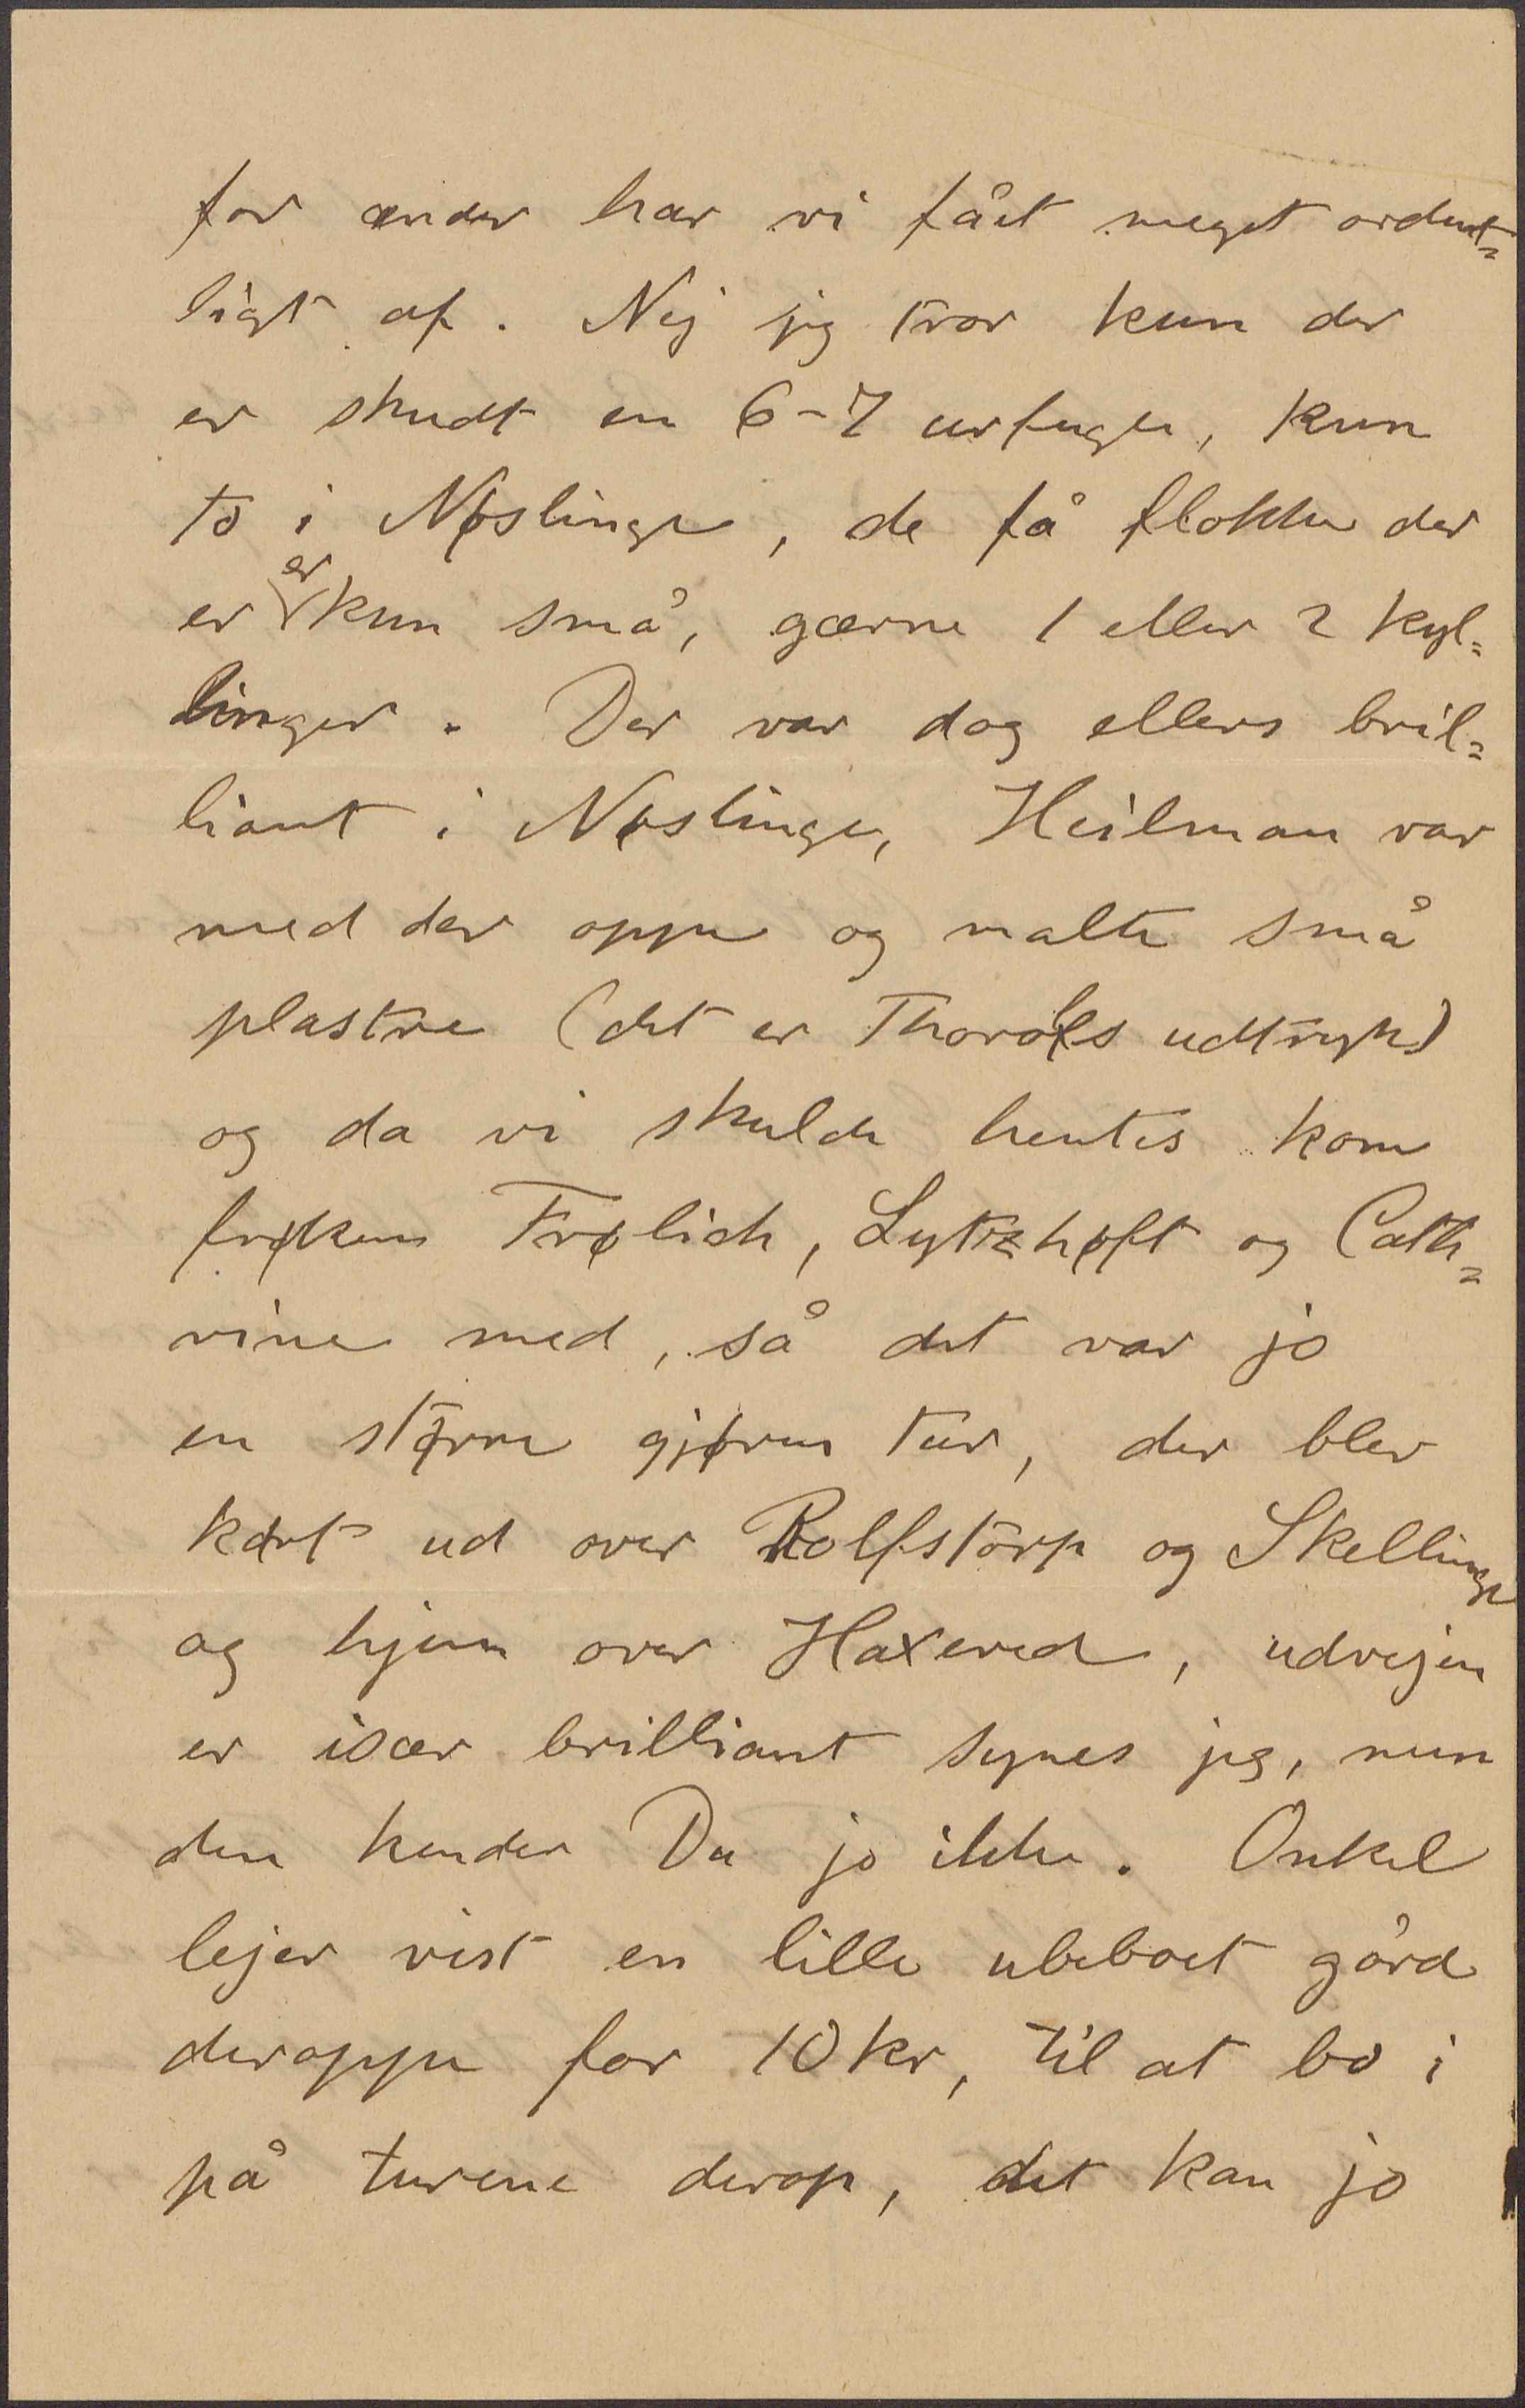 for ænder har vi fået meget ordent=
ligt af. Nej jeg tror kun der
er skudt en 6-7 urfugle, kun
to i Nøslinge, de få flokke der
er er kun små, gærne 1 eller 2 kyl=
linger. Der var dog ellers bril=
liant i Nøslinge, Heilman var
med der oppe og malte små
plastre (det er Thorolfs udtryk)
og da vi skulde hentes kom
frøken Frølich, Lytzhøft og Cath=
rine med, så det var jo
en større gjøren tur, der blev
kørt ud over Rolfstorp og Skellinge
og hjem over Haxered, udvejen
er især brilliant synes jeg, men
den kender Du jo ikke. Onkel
lejer vist en lille ubeboet gård
deroppe for 10 kr, til at bo i
på turene derop, det kan jo